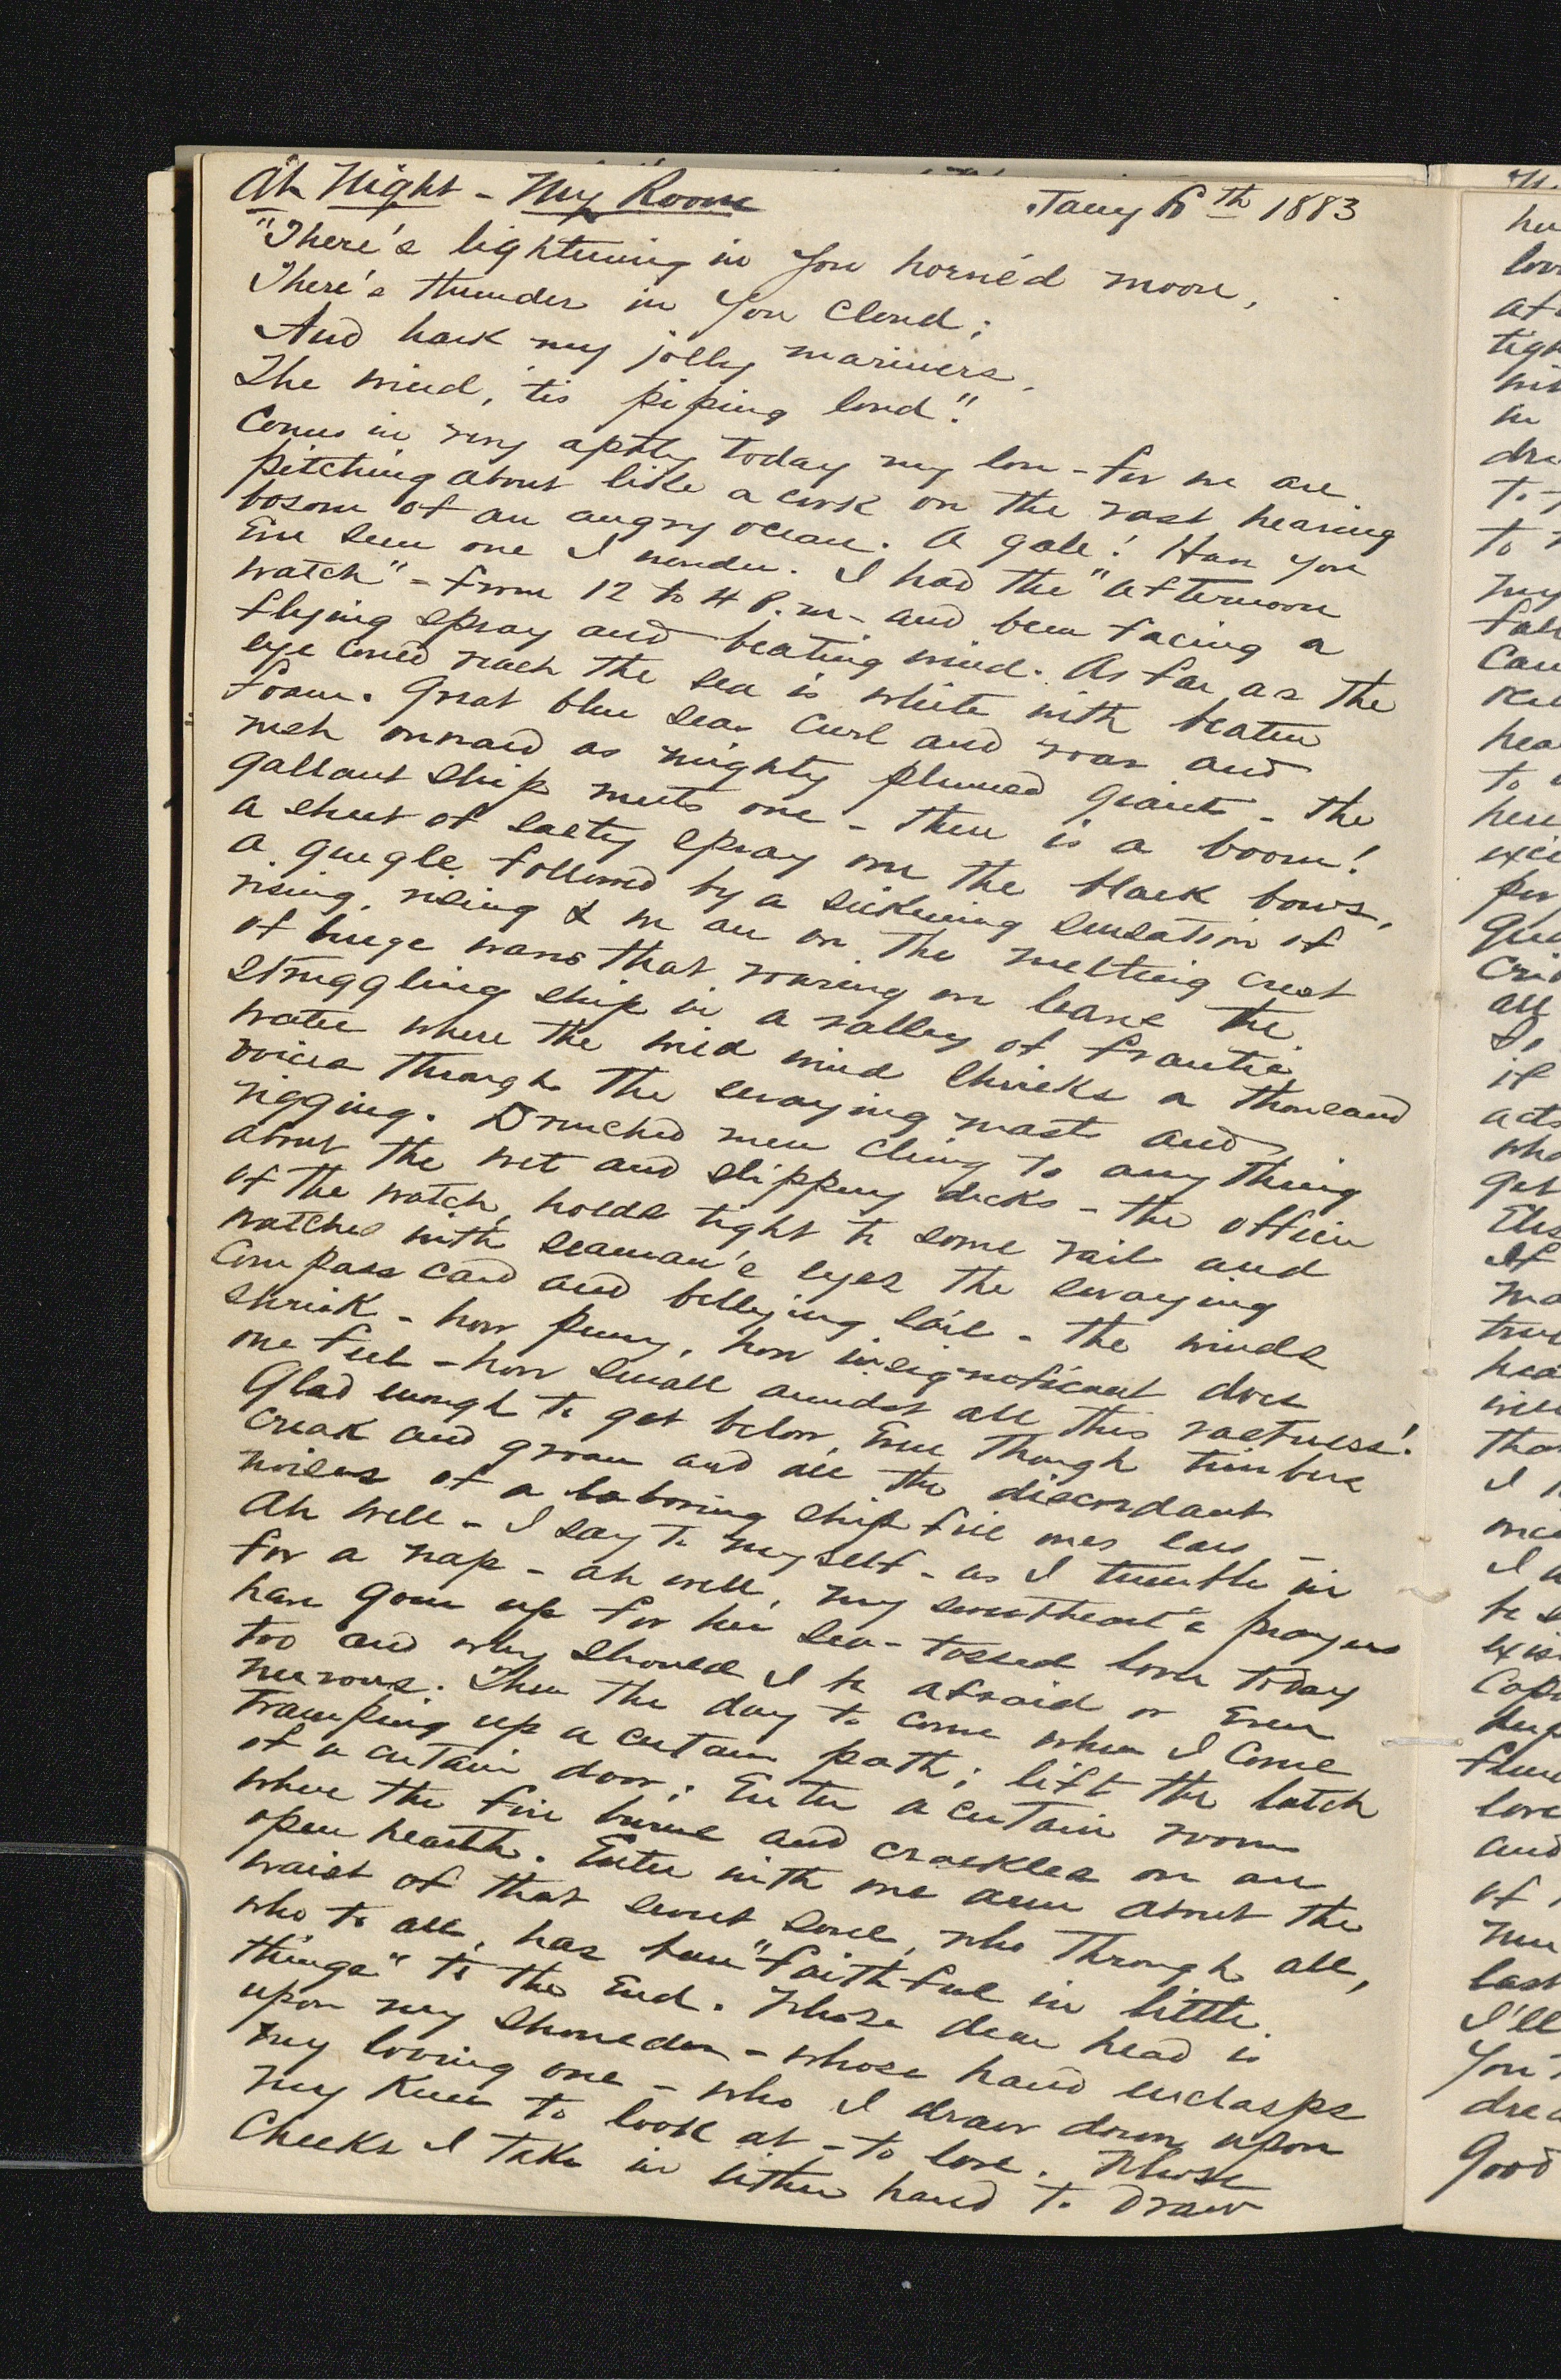 At Night - My Room Jany 6th 1883
"There's lightning in yon hornéd moon,
There's thunder in yon cloud;
And hark my jolly mariners,
The wind, 'tis piping loud".
Comes in very aptly today my love - for we are
pitching about like a cork on the vast heaving
bosom of an angry ocean. A gale! Have you
Ever seen one I wonder. I had the "afternoon
watch" - from 12 to 4 P.m - and been facing a
flying spray and beating wind. As far as the
eye could reach the sea is white with beaten
foam. Great blue seas curl and roar and
rush onward as mighty plumed giants - the
gallant ship meets one - there is a boom!
a sheet of salty spray over the black bows,
a gurgle followed by a sickening sensation of
rising, rising & we are on the melting crest
of huge waves that roaring on leave the
struggling ship in a valley of frantic
water where the wild wind shrieks a thousand
voices through the swaying masts and
rigging. Drenched men cling to any thing
about the wet and slippery decks - the officer
of the watch, holds tight to some rail and
watches with seaman's eyes the swaying
Compass card and bellying sail - the winds
shriek - how puny, how insignificant does
one feel - how small amidst all this vastness!
Glad enough to get below, Even though timbers
creak and groan and all the discordant
noises of a laboring ship fill ones ears -
Ah well - I say to myself - as I tumble in
for a nap - ah well, my sweetheart's prayers
have gone up for her sea-tossed lover today
too and why should I be afraid or Even
nervous. Then the day to come when I come
tramping up a certain path; lift the latch
of a certain door; Enter a certain room
where the fire burns and crackles on an
open hearth. Enter with one arm about the
waist of that sweet soul, who through all,
who to all, has been "faithful in little
things" to the End. Whose dear head is
upon my shoulder - whose hand enclasps
my loving one - who I draw down upon
my knee to look at - to love. Whose
Cheeks I take in either hand to draw